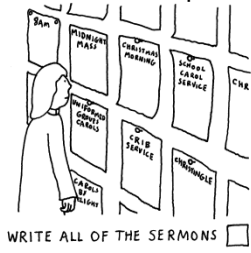 8am
MIDNIGHT
MASS
CHRISTMAS
MORNING
SCHOOL
CAROL
SERVICE
CHR
UNIFORMED
GROUPS
CAROLS
CRIB
SERVICE
CHRISTINGLE
CAROLS
BY
LIGHT
WRITE ALL OF THE SERMONS